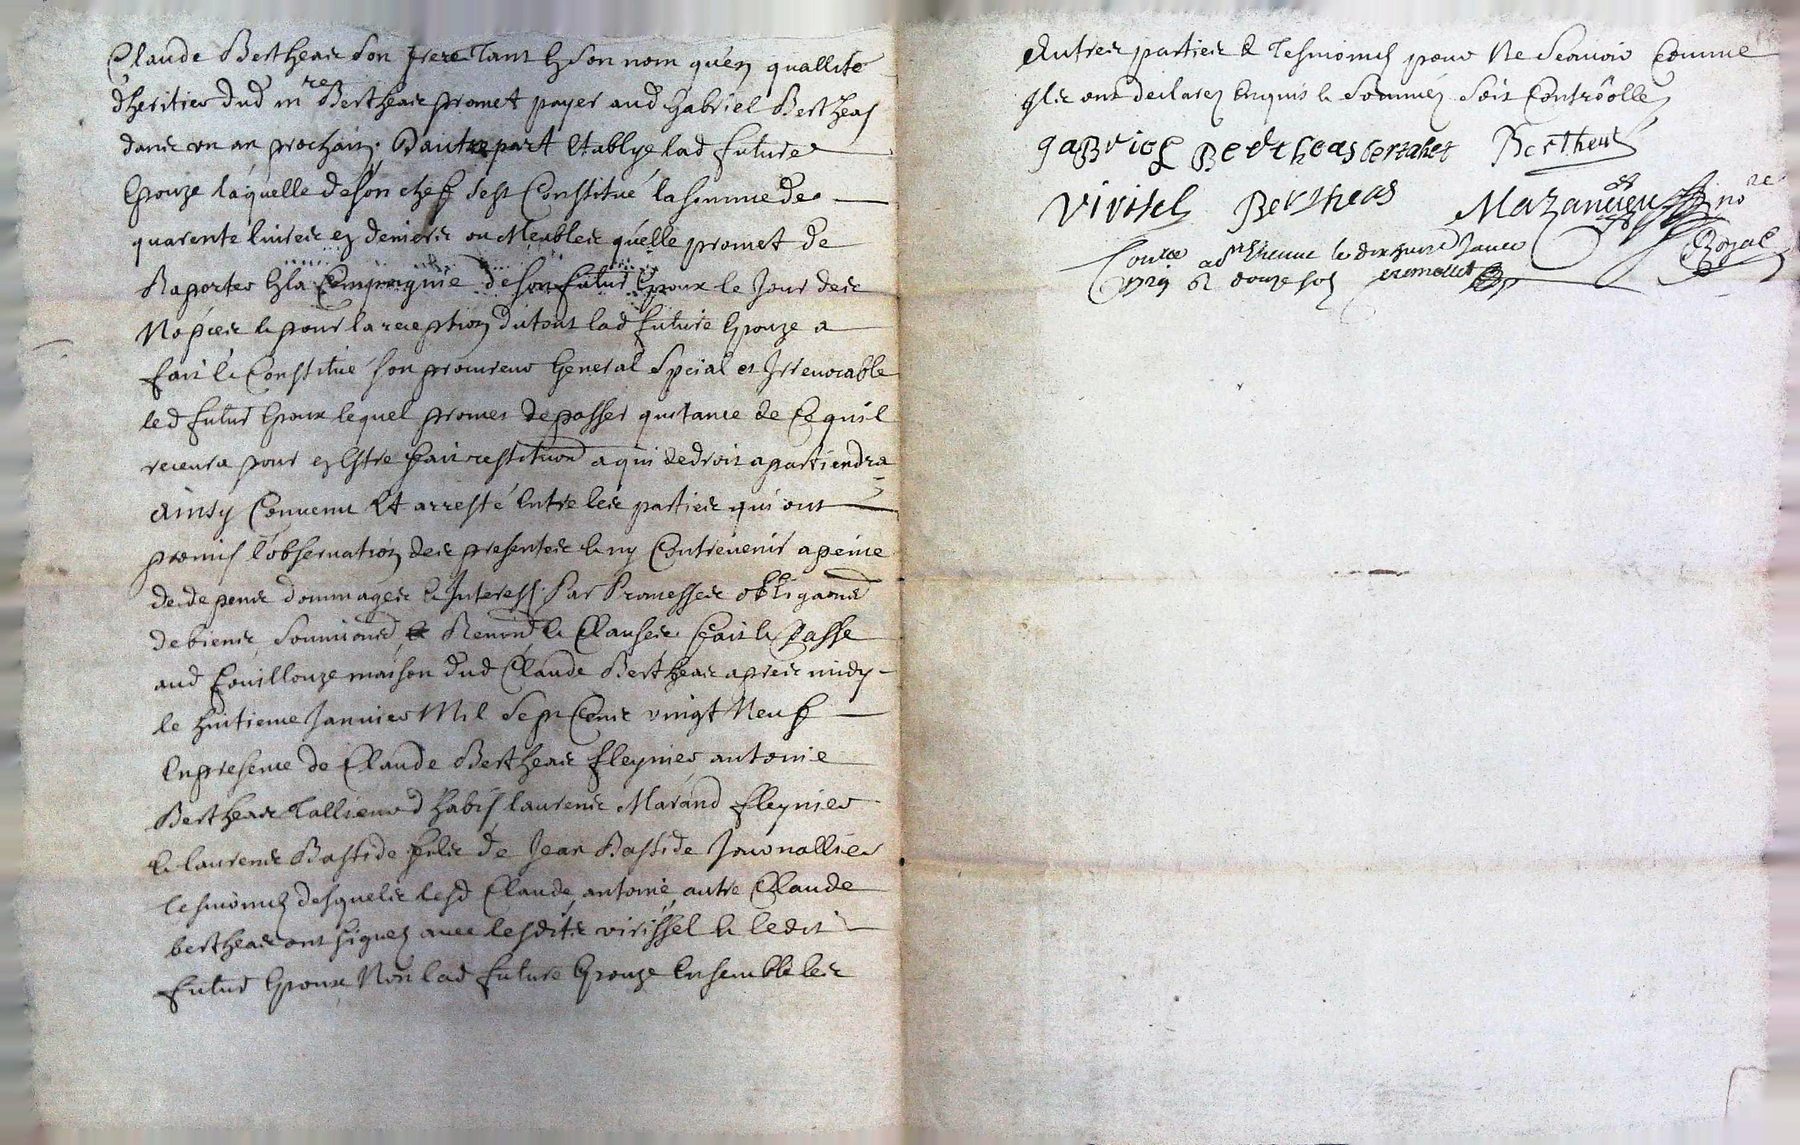 Claude Bertheas son frere tant en son nom qu'en quallité
d'heritier dud mre Bertheas promet payer aud Gabriel Bertheas
dans un an prochain. D'autre part Establye lad future
Epouze laquelle de son chef s'est Constitué la somme de
quarente livres en deniers ou Meubles qu'elle promet de
Raporter En la Compagnie de son futur Epoux le Jour des
Nopces & pour la reception du tout lad future Epouze a
fait & Constitué son procureur General Special et Irrevocable
led futur Epoux lequel promet de passer quitance de Ce quil
recevra pour en Estre fait restitution a qui de droit apartiendra
ainsy Convenu Et arresté Entre les parties qui ont
promis l'observation des presentes & ny Contrevenir a peine
de depens dommages & Interest Par Promesses obligaons
de biens, soumions, & Renons & Clauses. fait & Passé
aud maison dud Claude Bertheas apres midy
le huitieme Janvier Mil Sept Cens vingt Neuf
En presence de Claude Bertheas antoine
Bertheas Tallieur d'habis, laurens Marand
& laurens Bastide fils de Jean Bastide Journallier
tesmoins desquels lesd Claude, antoine, autre Claude
bertheas ont signez avec lesdits virissel & ledit
futur Epoux Non lad future Epouze Ensemble les
Autres parties & Tesmoins pour Ne Scavoir Comme
Ils ont declarez Enquis & Sommez Soit Controollez
gaBriel Bertheas Bertheas
virisel Bertheas Mazandieu nore
Royal
Conlle a le dix huit Janer
douze sols